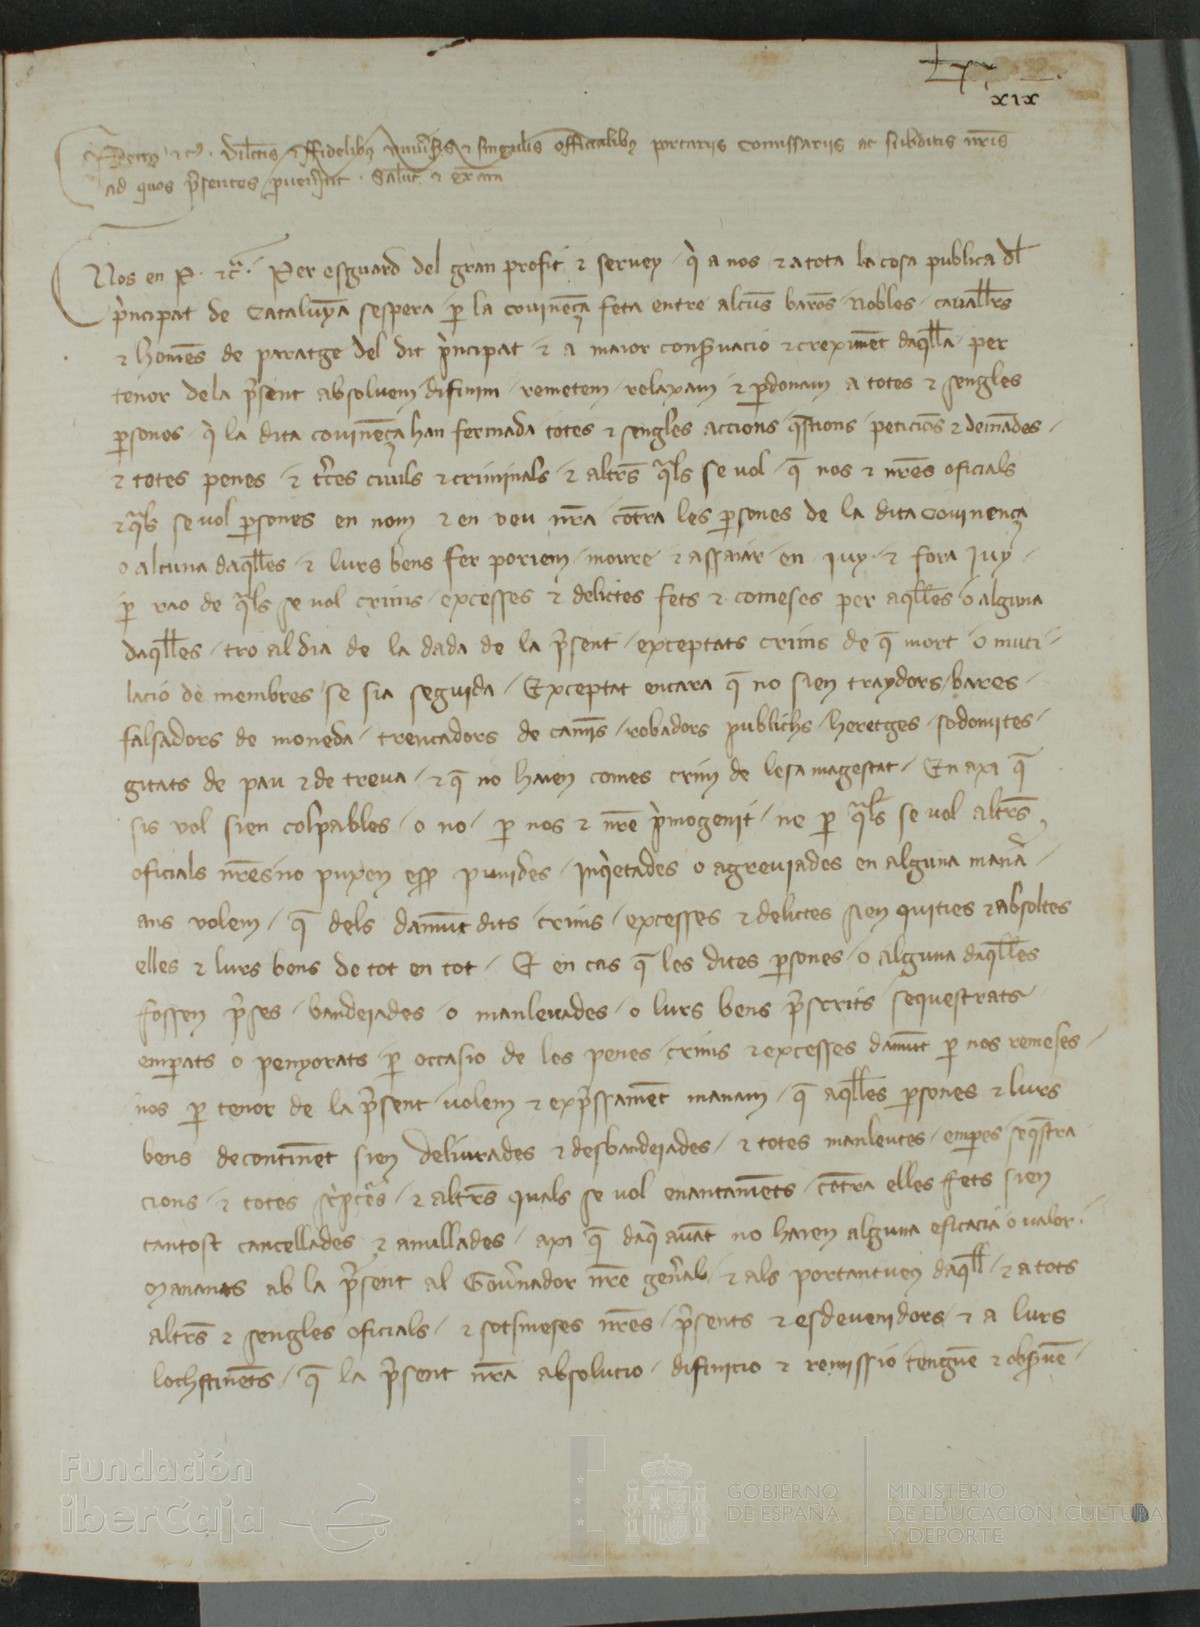 xix
Petrus etc. Dilectis et fidelibus universis et singulis officialibus portariis comissariis ac subditis nr̄is
ad quos p̄sentes pervenerint. Salut̄ et
Nos en P. etc̄. Per esguard del gran profit ⁊ servey q̇ a nos ⁊ a tota la cosa publica dl̄
p̀ncipat de Cataluȳa sespera ꝑ la covinēça feta entre alcūs barōs nobles cauall̄rs
⁊ homēs de paratge del dit p̀ncipat ⁊ a maior conẜuacio ⁊ creximēt daq̄ll̄a per
tenor de la p̄sent absoluem difinim remetem relaxam ⁊ ꝑdonam a totes ⁊ sengles
ꝑsones q̇ la dita covinēça han fermada totes ⁊ sengles accions q̄stions peticiōs ⁊ demādes
⁊ totes penes ⁊ civils ⁊ criminals ⁊ altr̄s q̄ls se vol q̄ nos ⁊ nr̄es oficials
⁊ q̄ls se vol ꝑsones en nom ⁊ en veu nr̄a cōtra les ꝑsones de la dita covinença
o alcuna daq̄ll̄es ⁊ lurs bens fer poriem moure ⁊ assaiar en iuy ⁊ fora iuy
ꝑ rao de q̄ls se vol crims excesses ⁊ delictes fets ⁊ comeses per aq̄ll̄es o alguna
daq̄ll̄es tro al dia de la dada de la p̄sent exceptats crims de q̄ mort o muti
lacio de membres se sia seguida Exceptat encara q̄ no sien traydors bares
falsadors de moneda trencadors de camīs robadors publichs heretges sodomites
gitats de pau ⁊ de treva ⁊ q̄ no haien comes crim de lesa magestat En axi q̄
sis vol sien colpables o no ꝑ nos ⁊ nr̄e p̀mogenit ne ꝑ q̄ls se vol altr̄s
oficials nr̄es no puxen eẜẜ punides inq̇etades o agreuiades en alguna mana
ans volem q̄ dels damūt dits crims excesses ⁊ delictes sien quities ⁊ absoltes
elles ⁊ lurs bens de tot en tot E en cas q̄ les dites ꝑsones o alguna daq̄ll̄es
fossen p̄ses bandeiades o manlevades o lurs bens p̄scrits sequestrats
emꝑats o penyorats ꝑ occasio de les penes crims ⁊ excesses damūt ꝑ nos remeses
nos ꝑ tenor de la p̄sent volem ⁊ exp̄ssamēt manam q̄ aq̄ll̄es ꝑsones ⁊ lurs
bens decontinēt sien deliurades ⁊ desbandeiades ⁊ totes manleutes emꝑes seq̄stra
cions ⁊ totes ⁊ altr̄s quals se vol enantamēts cōtra elles fets sien
tantost cancellades ⁊ anullades axi q̄ daq̇ auāt no haien alguna eficacia o valor
Manants ab la p̄sent al Gov̄nador nr̄e gen̄al ⁊ als portantveu daq̄ll̄ ⁊ a tots
altr̄s ⁊ sengles oficials ⁊ sotsmeses nr̄es p̄sents ⁊ esdevenidors ⁊ a lurs
lochstinēts q̄ la p̄sent nr̄a absolucio difinicio ⁊ remissio tenguē ⁊ obẜuē
Fundación
iberCaja
GOBIERNO
DE ESPAÑA
MINISTERIO
DE EDUCACIÓN, CULTURA
Y DEPORTE